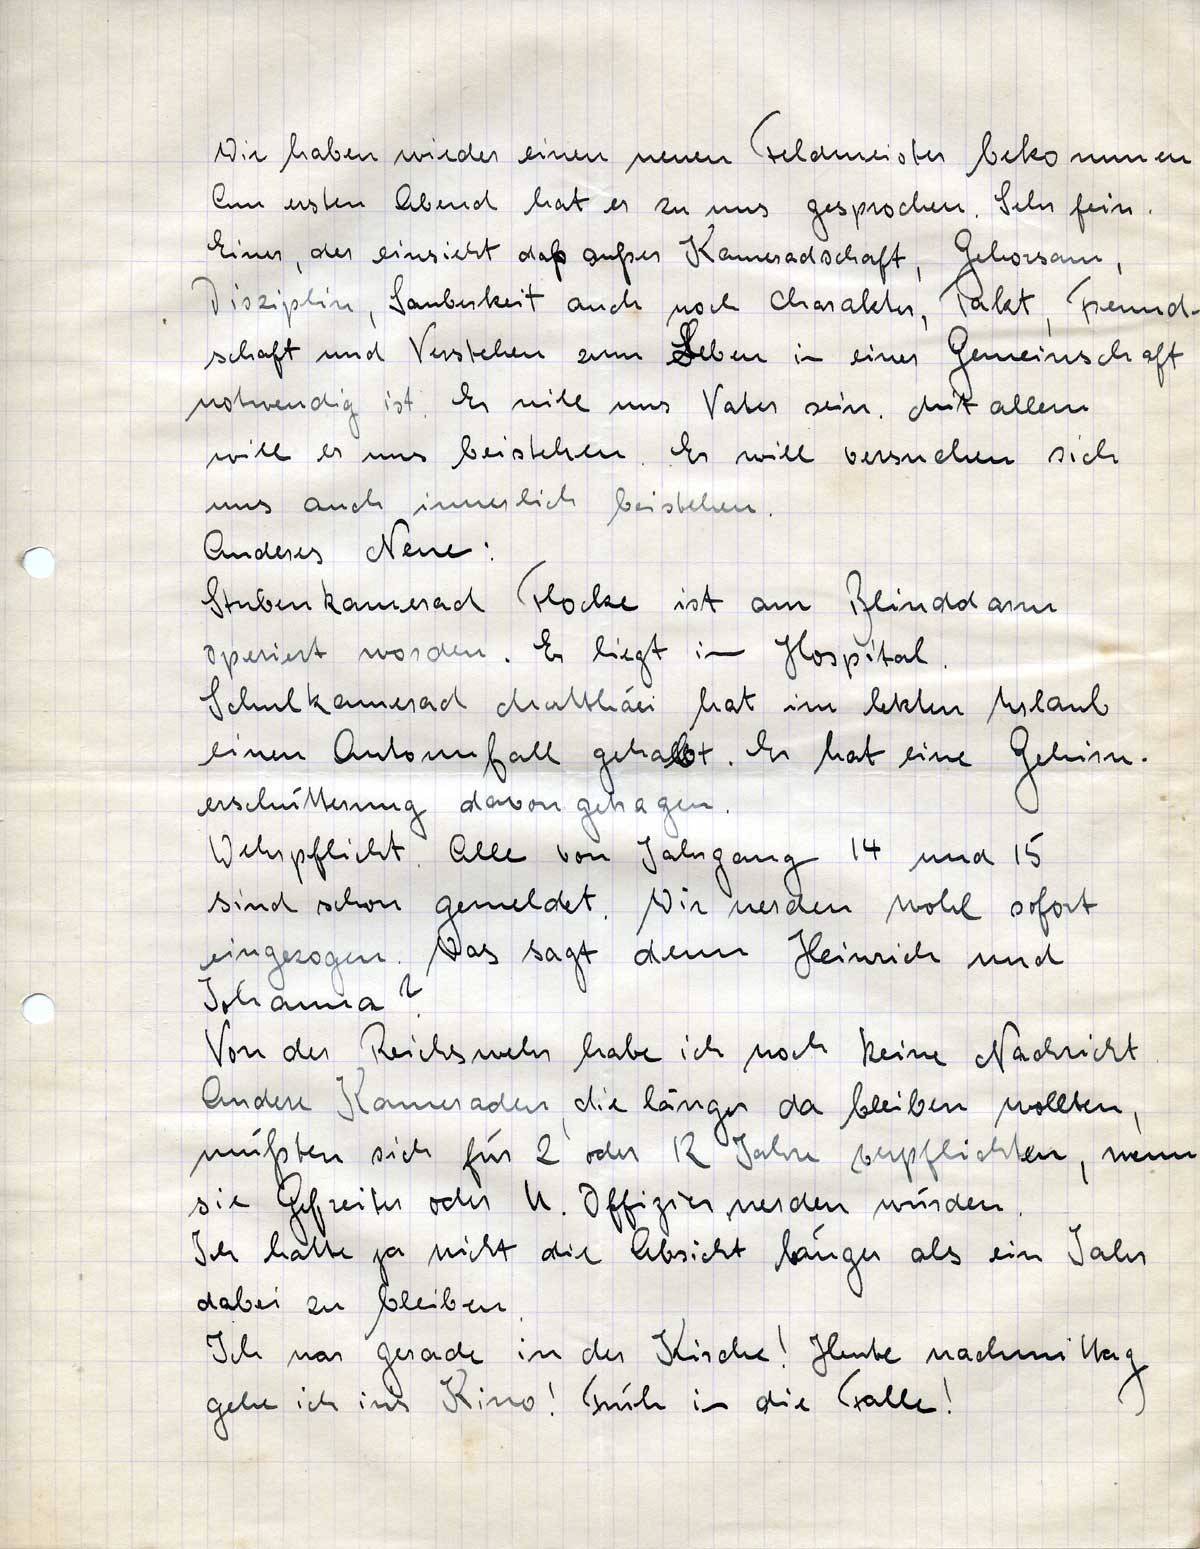 Wir haben wieder einen neuen Feldmeister bekommen
Am ersten Abend hat er zu uns gesprochen. Sehr fein.
Einer, der einsieht daß außer Kameradschaft, Gehorsam,
Disziplin, Sauberkeit auch noch Charakter, Takt, Freund-
schaft und Verstehen zum Leben in einer Gemeinschaft
notwendig ist. Er will uns Vater sein. Mit allem
will er uns beistehen. Er will versuchen sich
uns auch innerlich beistehen.
Anderes Neue:
Stubenkamerad Flocke ist am Blinddarm
operiert worden. Er liegt im Hospital.
Schulkamerad Matthäi hat im letzten Urlaub
einen Autounfall gehabt. Er hat eine Gehirn-
erschütterung davongetragen.
Wehrpflicht. Alle von Jahrgang 14 und 15
sind schon gemeldet. Wir werden wohl sofort
eingezogen. Was sagt denn Heinrich und
Johanna?
Von der Reichswehr habe ich noch keine Nachricht
Andere Kameraden, die länger da bleiben wollten,
müßten sich für 2 oder 12 Jahre verpflichten, wenn
sie Gefreiter oder U. Offizier werden würden.
Ich hatte ja nicht die Absicht länger als ein Jahr
dabei zu bleiben.
Ich war gerade in der Kirche! Heute nachmittag
gehe ich ins Kino! Früh in die Falle!